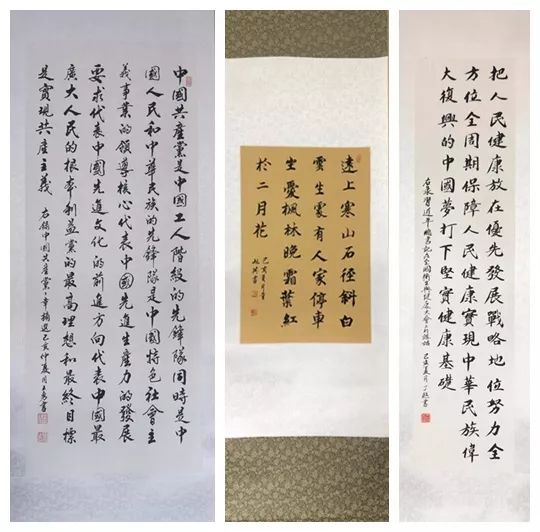 中國共產黨是中國工人階級的先鋒隊同時是中
國人民和中華民族的先鋒隊是中國特色社會主
義事業的領導核心代表中國先進生產力的發展
要求代表中國先進文化的前進方向代表中國最
廣大人民的根本利益黨的最高理想和最終目標
是實現共產主義
右錄中國共產黨章摘選己亥仲夏月書
遠上寒山石徑斜白
雲生處有人家停車
坐愛楓林晚霜葉紅
於二月花
己亥夏月書
把人民健康放在優先發展戰略地位努力全
方位全周期保障人民健康實現中華民族偉
大復興的中國夢打下堅實健康基礎
右錄習近平總書記在全國衛生與健康大會上的講話 己亥夏月丁書